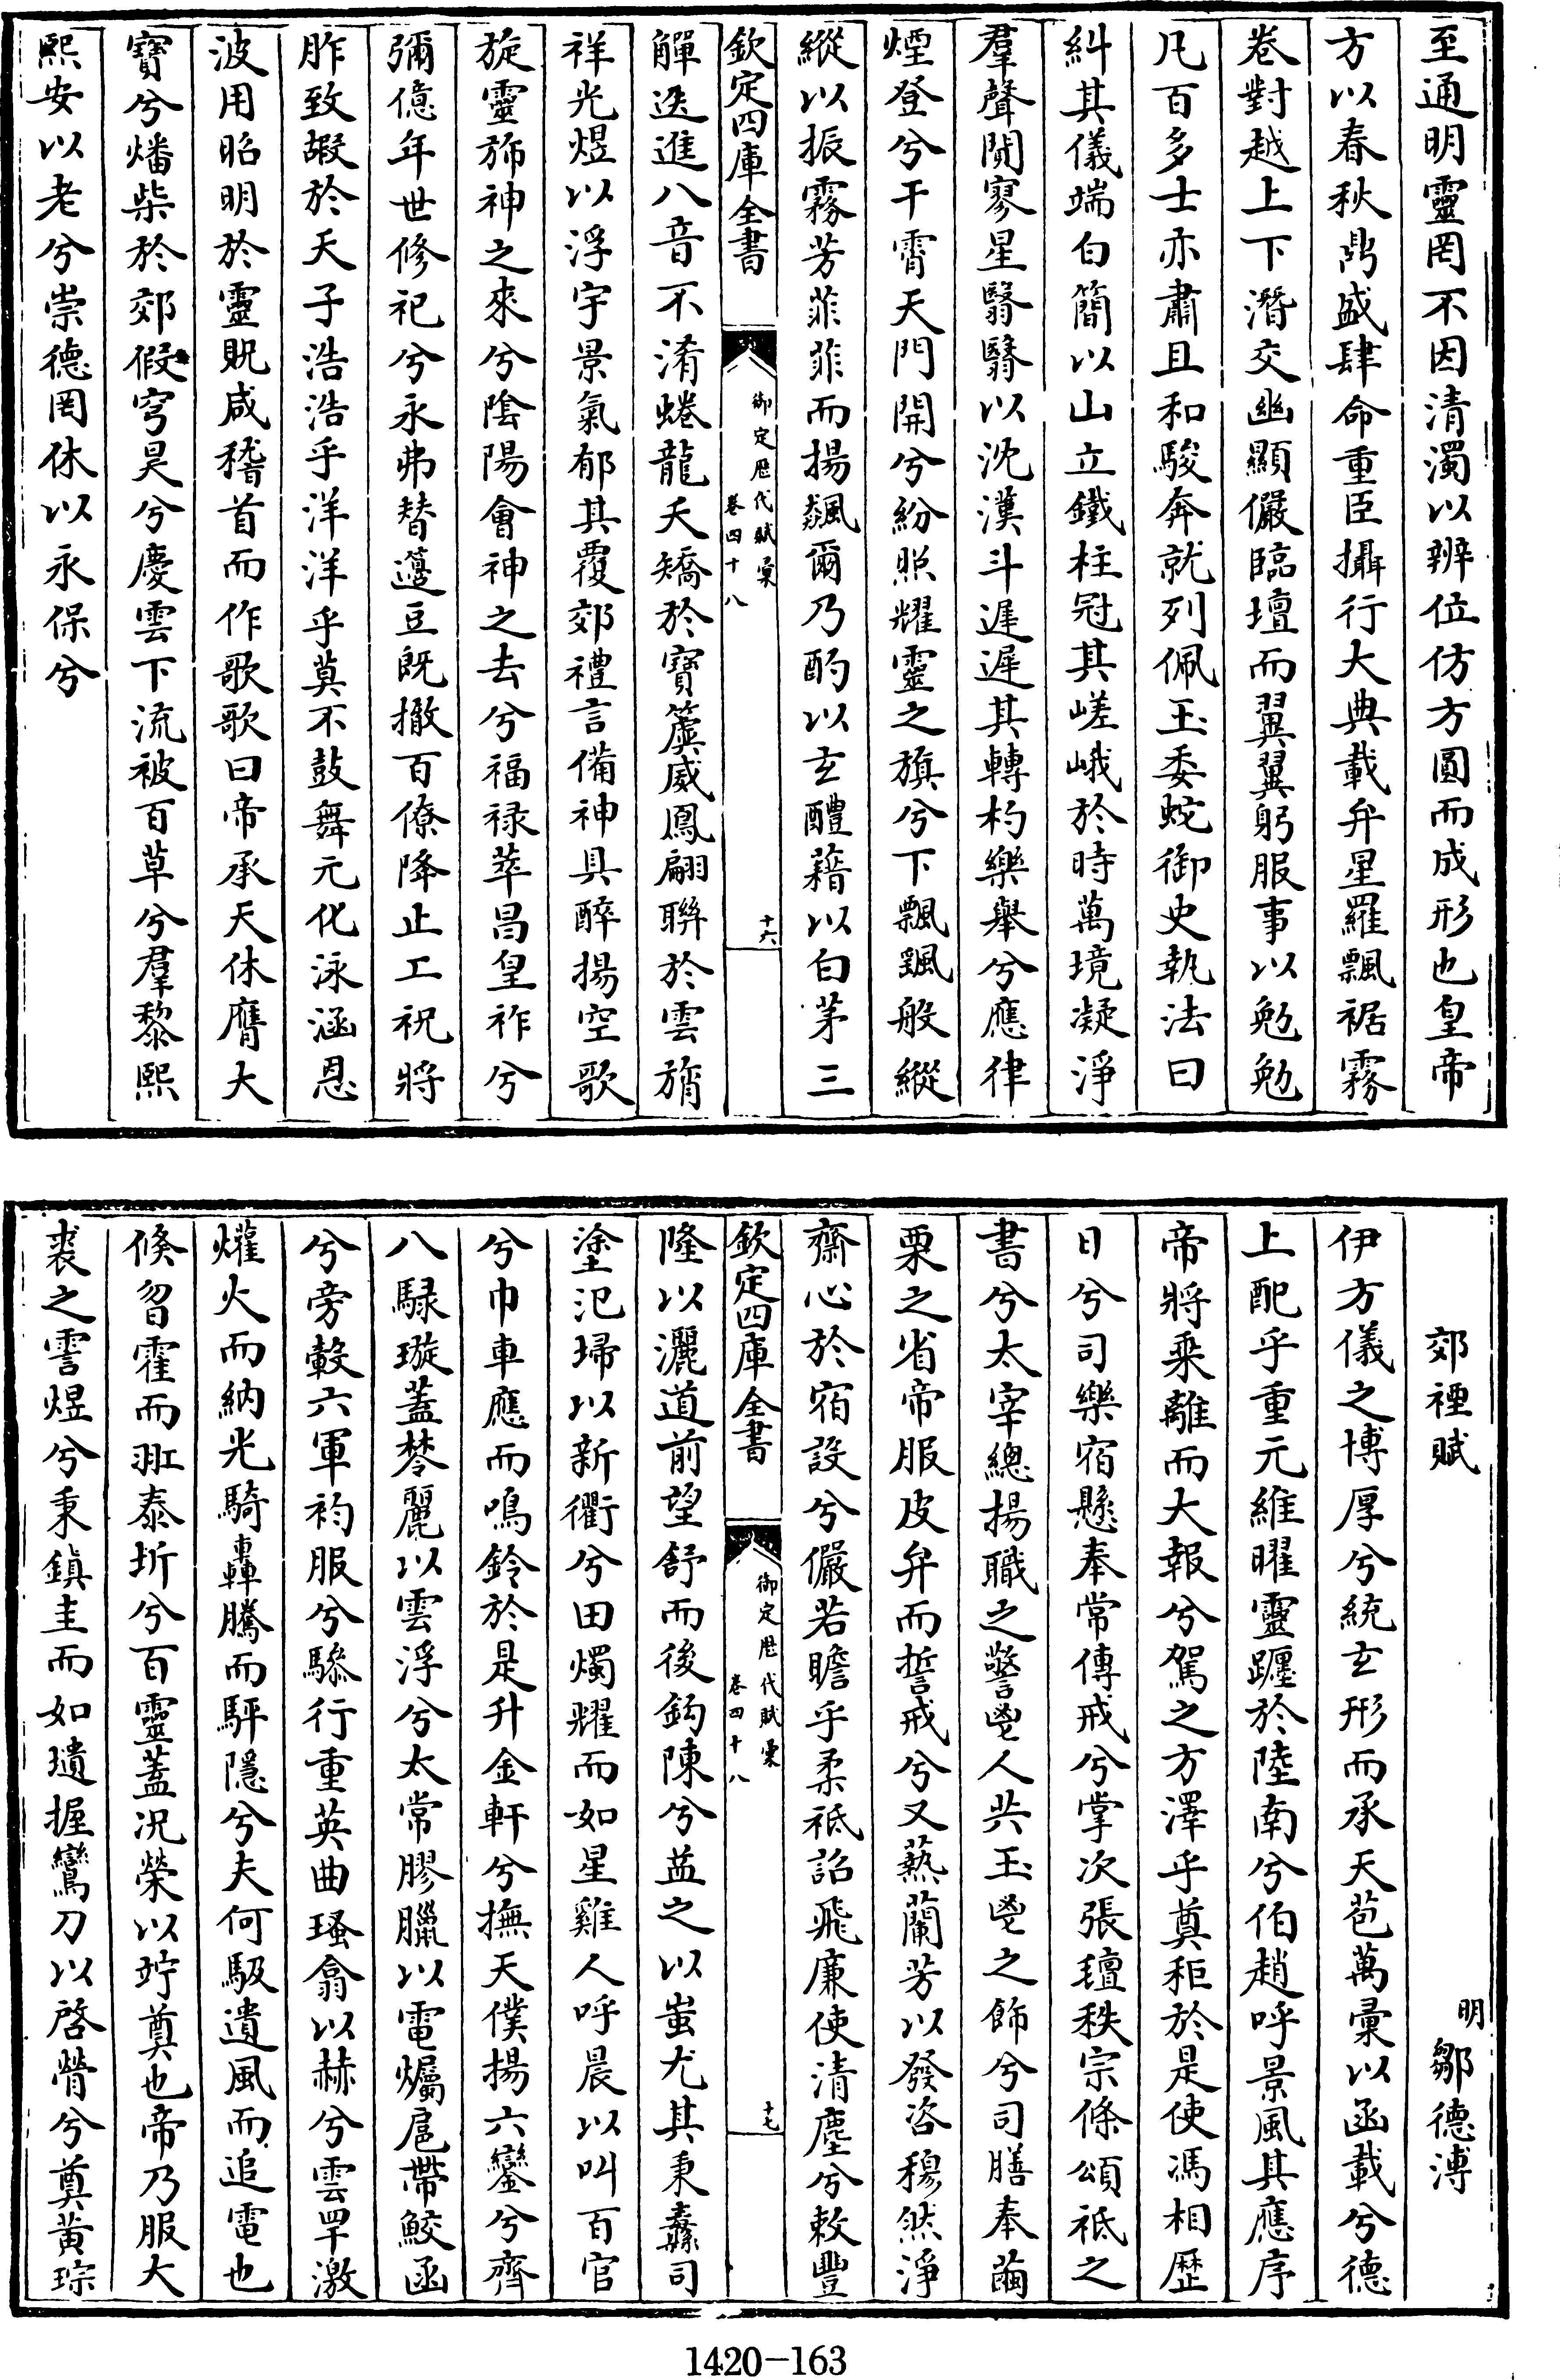 至通明靈罔不因清濁以辨位仿方圓而成形也皇帝
方以春秋鼎盛肆命重臣攝行大典載弁星羅飄裾霧
卷對越上下潛交幽顯儼臨壇而翼翼躬服事以勉勉
凡百多士亦肅且和駿奔就列佩玉委蛇御史執法曰
糾其儀端白簡以山立鐵柱冠其嵯峨於時萬境凝淨
羣聲閴寥星翳翳以沈漢斗遲遲其轉杓樂舉兮應律
煙登兮干霄天門開兮紛照耀靈之旗兮下飄颻般縱
縱以振霧芳菲菲而揚飆爾乃酌以玄醴藉以白茅三
欽定四庫全書
御定歷代賦彙
卷四十八
十六
觶迭進八音不淆蜷龍天矯於寶簴威鳳翩聯於雲旓
祥光煜以浮宇景氣郁其覆郊禮言備神具醉揚空歌
旋靈斾神之來兮陰陽會神之去兮福禄萃昌皇祚兮
彌億年世修祀兮永弗替籩豆既撤百僚降止工祝將
胙致嘏於天子浩浩乎洋洋乎莫不鼓舞元化泳涵恩
波用昭明於靈貺咸稽首而作歌歌曰帝承天休膺大
寶兮燔柴於郊假穹昊兮慶雲下流被百草兮羣黎熙
熙安以老兮崇德罔休以永保兮
郊禋賦
明鄒德溥
伊方儀之博厚兮統玄形而承天苞萬彙以函載兮德
上配乎重元維曜靈躔於陸南兮伯趙呼景風其應序
帝將乘離而大報兮駕之方澤乎奠秬於是使馮相歴
日兮司樂宿懸奉常傳戒兮掌次張氊秩宗條頌祗之
書兮太宰總揚職之警鬯人共玉鬯之飾兮司膳奉繭
栗之省帝服皮弁而誓戒兮又爇蘭芳以發咨穆然淨
齋心於宿設兮儼若瞻乎柔祗詔飛廉使清塵兮敕豐
欽定四庫全書
御定歷代賦彙
卷四十八
十七
隆以灑道前望舒而後鈎陳兮益之以蚩尤其秉纛司
塗氾埽以新衢兮田燭耀而如星雞人呼晨以叫百官
兮巾車應而鳴鈴於是升金軒兮撫天僕揚六鑾兮齊
八騄璇蓋棽麗以雲浮兮太常膠臘以電爥扈帶鮫函
兮旁轂六軍袀服兮驂行重英曲瑵翕以赫兮雲罕激
爟火而納光騎轟騰而駍隱兮夫何馺遺風而追電也
倏曶霍而羾泰折兮百靈蓋況榮以竚奠也帝乃服大
裘之雪煜兮秉鎮圭而如璝握鸞刀以啓膋兮奠黄琮
1420-163